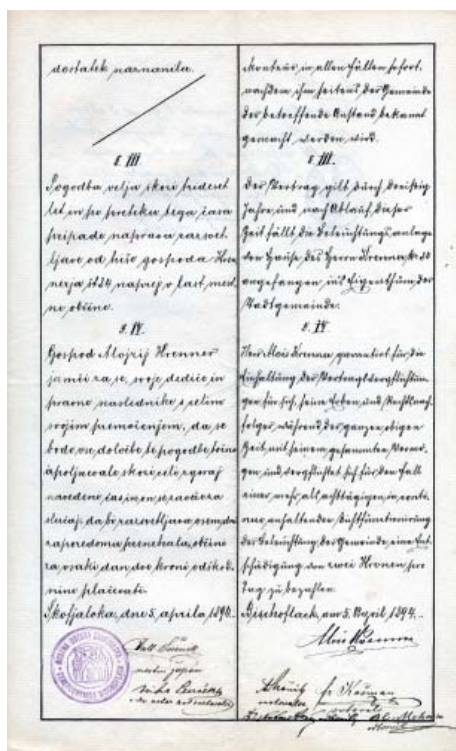 dostatek naznanila.
§. III.
Pogodba velja skozi trideset
let in po preteku tega časa
pripade naprava razsvet-
ljave od hiše gospoda Kren-
nerja št. 24 naprej v last mest-
ne občine.
§. IV.
Gospod Alojzij Krenner
jamči za se, svoje dediče in
pravne naslednike s celim
svojim premoženjem, da se
bode vse določbe te pogodbe točno
izpolnjevale skozi celi zgoraj
navedeni čas in
slučaj, da bi razsvetljava osem dni
zaporedoma prenehala, občini
za vsaki dan dve kroni odškod-
nine plačevati.
Škofjaloka, dne 5. aprila 1894.
Monteur, in allen Fällen sofort,
nachdem ihm seitens der Gemeinde
der betreffende Anstand bekannt
gemacht werden wird.
§. III.
Der Vertrag gilt durch dreißig
Jahre und nach Ablauf dieser
Zeit fällt die Beleuchtungsanlage
vom Hause des Herrn Krenner Nr.
angefangen ins Eigenthum der
Stadtgemeinde.
§. IV.
Herr Alois Krenner garantiert für die
Einhaltung der Vertragsverpflichtun-
gen für sich, seine Erben und Rechtsnach-
folger während der ganzen obigen
Zeit mit seinem gesammten Vermö-
gen und verpflichtet sich für den Fall
einer mehr als achttägigen in conti-
nuo anhaltenden Nichtfunktionirung
der Beleuchtung der Gemeinde eine Ent-
schädigung von zwei Kronen pro
Tag zu bezahlen.
Bischoflack, am 5. April 1894.
Alois Krenner